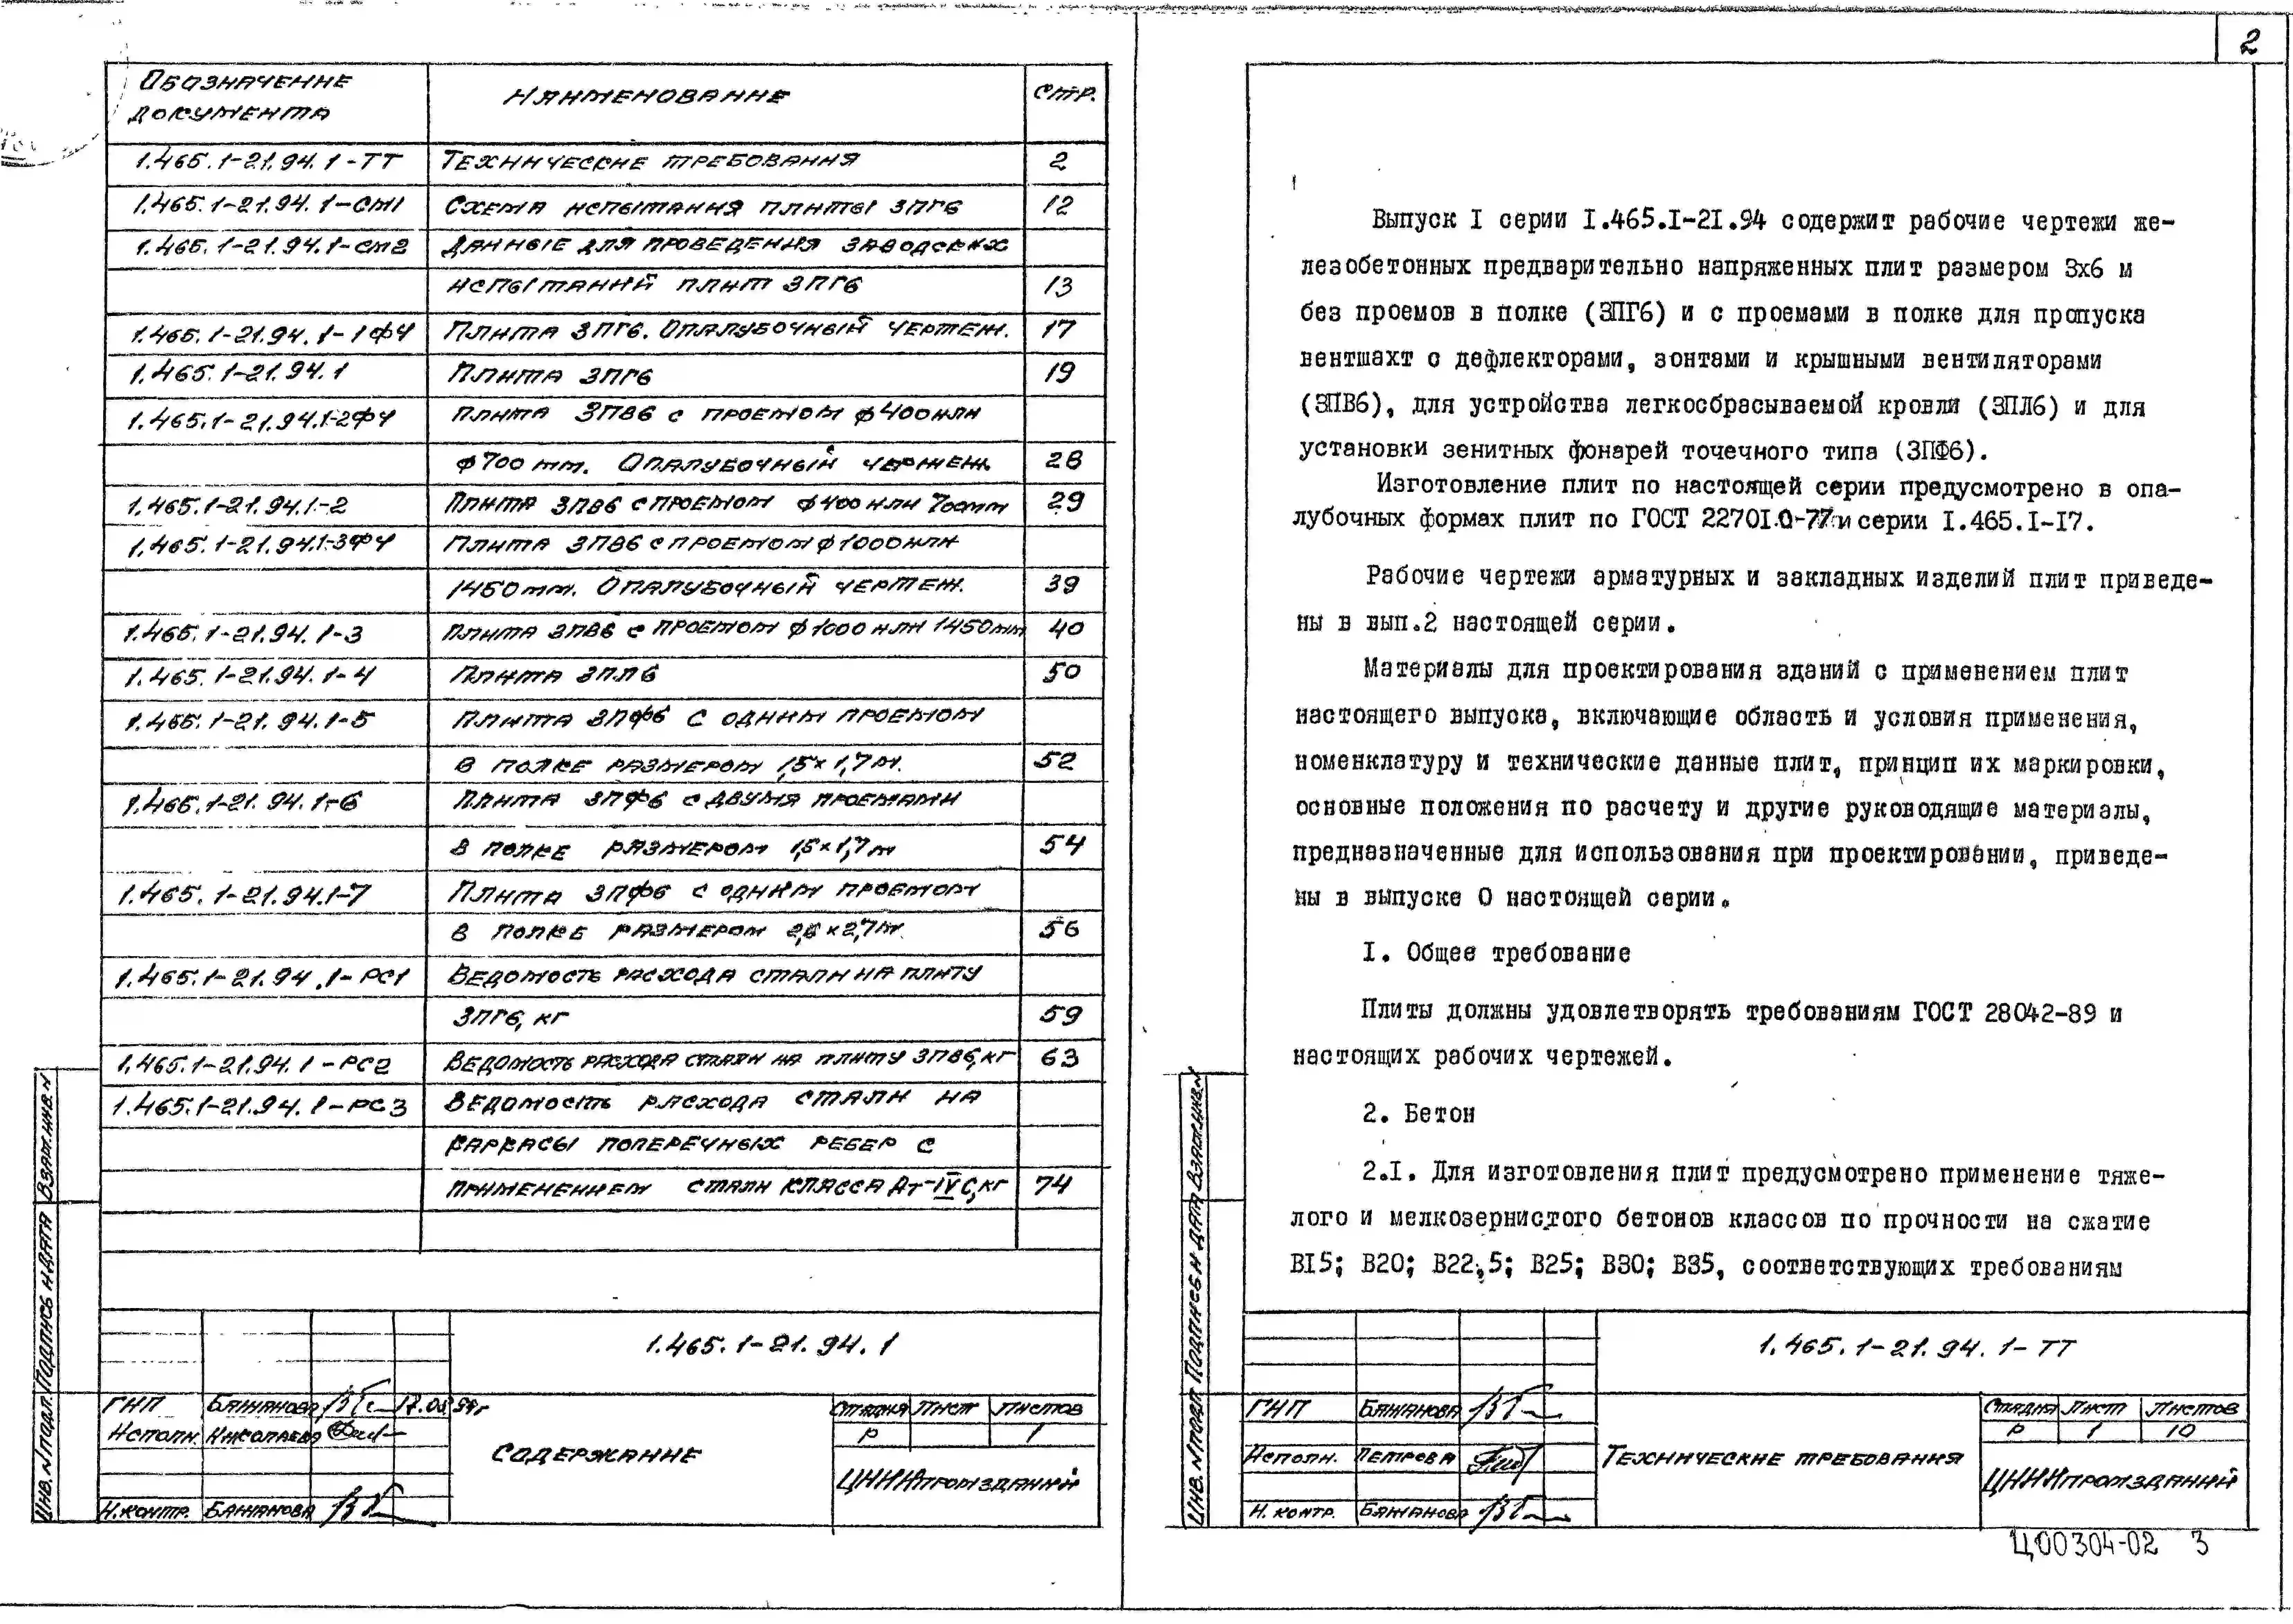 Обозначение документа Наименование Стр.
1.465.1-21.94.1-ТТ Технические требования 2
1.465.1-21.94.1-СМ1 Схема испытания плиты 3ПГ6 12
1.465.1-21.94.1-СМ2 Данные для проведения заводских
испытаний плит 3ПГ6 13
1.465.1-21.94.1-1ФЧ Плита 3ПГ6. Опалубочный чертеж. 17
1.465.1-21.94.1 Плита 3ПГ6 19
1.465.1-21.94.1-2ФЧ Плита 3ПВ6 с проемом ф400 или
ф700мм. Опалубочный чертеж. 28
1.465.1-21.94.1-2 Плита 3ПВ6 с проемом ф400 или 700мм 29
1.465.1-21.94.1-3ФЧ Плита 3ПВ6 с проемом ф1000 или
1450мм. Опалубочный чертеж. 39
1.465.1-21.94.1-3 Плита 3ПВ6 с проемом ф1000 или 1450мм 40
1.465.1-21.94.1-4 Плита 3ПЛ6 50
1.465.1-21.94.1-5 Плита 3ПФ6 с одним проемом
в полке размером 1,5х1,7м. 52
1.465.1-21.94.1-6 Плита 3ПФ6 с двумя проемами
в полке размером 1,5х1,7м 54
1.465.1-21.94.1-7 Плита 3ПФ6 с одним проемом
в полке размером 2,5х2,7м. 56
1.465.1-21.94.1-РС1 Ведомость расхода стали на плиту
3ПГ6, кг 59
1.465.1-21.94.1-РС2 Ведомость расхода стали на плиту 3ПВ6, кг 63
1.465.1-21.94.1-РС3 Ведомость расхода стали на
каркасы поперечных ребер с
применением стали класса Ат-IVС, кг 74
Инв. N подл. Подпись и дата Взам.инв.N
1.465.1-21.94.1
ГИП Бажанова 17.03.94г
Исполн. Николаева
Н.контр. Бажанова
Содержание
Стадия Лист Листов
Р 1
ЦНИИпромзданий
2
Выпуск I серии I.465.I-2I.94 содержит рабочие чертежи же-
лезобетонных предварительно напряженных плит размером 3х6 м
без проемов в полке (3ПГ6) и с проемами в полке для пропуска
вентшахт с дефлекторами, зонтами и крышными вентиляторами
(3ПВ6), для устройства легкосбрасываемой кровли (3ПЛ6) и для
установки зенитных фонарей точечного типа (3ПФ6).
Изготовление плит по настоящей серии предусмотрено в опа-
лубочных формах плит по ГОСТ 22701.0-77 и серии I.465.I-I7.
Рабочие чертежи арматурных и закладных изделий плит приведе-
ны в вып.2 настоящей серии.
Материалы для проектирования зданий с применением плит
настоящего выпуска, включающие область и условия применения,
номенклатуру и технические данные плит, принцип их маркировки,
основные положения по расчету и другие руководящие материалы,
предназначенные для использования при проектировании, приведе-
ны в выпуске 0 настоящей серии.
I. Общее требование
Плиты должны удовлетворять требованиям ГОСТ 28042-89 и
настоящих рабочих чертежей.
2. Бетон
2.I. Для изготовления плит предусмотрено применение тяже-
лого и мелкозернистого бетонов классов по прочности на сжатие
BI5; B20; B22,5; B25; B30; B35, соответствующих требованиям
Инв. N подл. Подпись и дата Взам.инв.N
1.465.1-21.94.1-ТТ
ГИП Бажанова
Исполн. Петрова
Н. контр. Бажанова
Технические требования
Стадия Лист Листов
Р 1 10
ЦНИИпромзданий
Ц00304-02 3